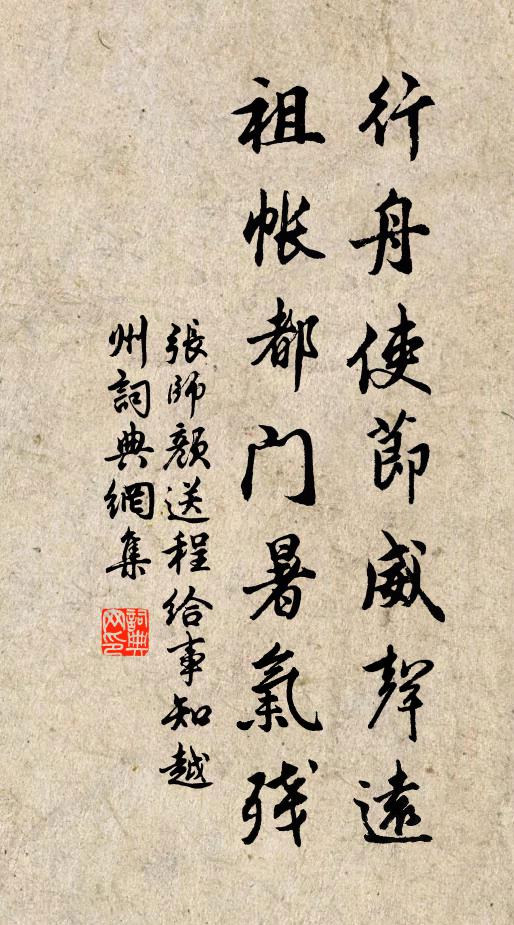 行舟使節威聲遠
祖帳都門暑氣殘
張師顏送程給事知越
州詞典網集
詞典
网印